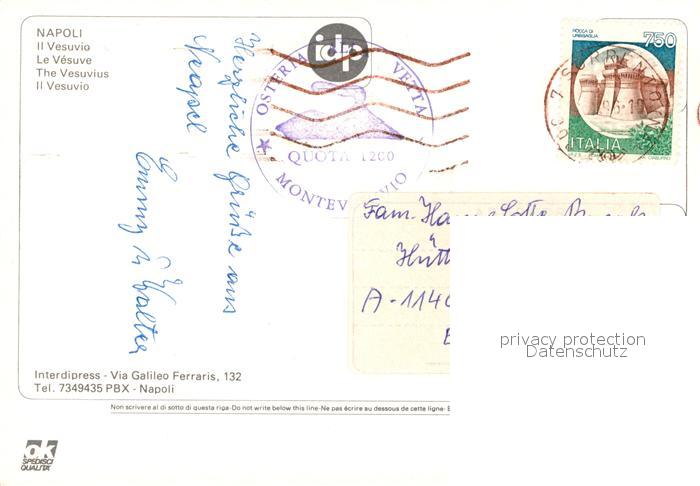 NAPOLI
Il Vesuvio
Le Vésuve
The Vesuvius
Il Vesuvio
idp
OSTERIA VETTA
QUOTA 1200
MONTEVESUVIO
ROCCA DI
URBISAGLIA
750
ITALIA
Herzliche Grüße aus
Neapel
Emmy u Walter
Fam.
Hütt
A-1140
privacy protection
Datenschutz
Interdipress - Via Galileo Ferraris, 132
Tel. 7349435 PBX - Napoli
Non scrivere al di sotto di questa riga-Do not write below this line-Ne pas écrire au dessous de cette ligne-
ok
SPEDISCI
QUALITA'